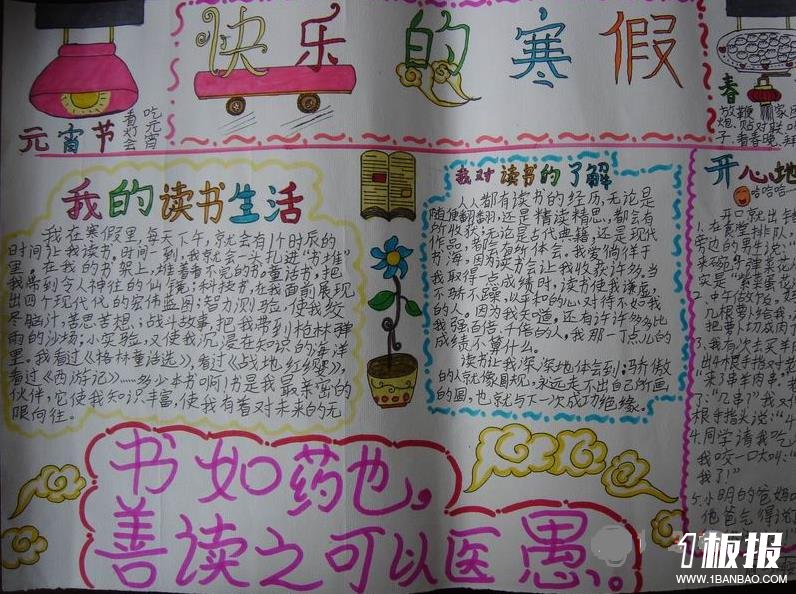 快乐的寒假
元宵节
吃元宵
看灯会
春
放鞭
炮、贴对联
我的读书生活
我在寒假里,每天下午,就会有1个时辰的
时间让我读书,时间一到,我就会一头扎进“书堆”
里。在我的书架上,堆着看不完的书。童话书,把
我带到令人神往的仙境;科技书,在我面前展现
出四个现代化的宏伟蓝图;智力测验,使我绞
尽脑汁,苦思苦想;战斗故事,把我带到枪林弹
雨的沙场;小实验,又使我沉浸在知识的海洋
里。我看过《格林童话选》,看过《战地红缨》,
看过《西游记》……多少本书啊!书是我最亲密的
伙伴,它使我知识丰富,使我有着对未来的无
限向往。
我对读书的了解
人人都有读书的经历,无论是
随便翻翻,还是精读精思,都会有
所收获;无论是古代典籍,还是现代
作品,都会有所体会。我爱徜徉于
书海,因为读书会让我收获许多,当
我取得一点成绩时,读书使我谦虚,
不骄不躁,以平和的心对待不如我
的人。因为我知道,还有许许多多比
我强百倍、千倍的人,我那一丁点儿的
成绩不算什么。
读书让我深深地体会到:骄傲
的人就像圆规,永远走不出自己所画
的圆,也就与下一次成功绝缘。
开心地
哈哈哈
开口就出
1.在食堂排队,
旁边的男生说:“
来碗
实是“紫菜蛋花
2.中午做饭
几根萝卜给我
把萝卜切成肉丁
3.我有次去买羊肉
出4根手指对老
“来了串羊肉串。”
了“几串?”我对
根手指头说:“4
4.同学请我吃
我咬一口大叫:“
我了!”
5.小明的爸妈
他爸气得说
书如药也,
善读之可以医愚。
1板报
WWW.1BANBAO.COM